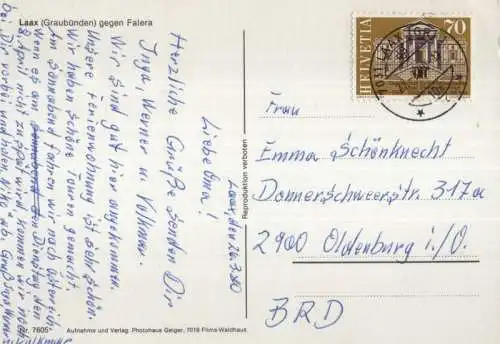 Laax (Graubünden) gegen Falera
Laax, den 26.3.80
Liebe Oma!
Herzliche Grüße senden Dir
Inga, Werner u. Volkmar.
Wir sind gut hier angekommen.
Unsere Ferienwohnung ist sehr schön.
Wir haben schöne Touren gemacht.
Am Sonnabend fahren wir nach Österreich.
Wenn es am Dienstag den
8. April nicht zu spät wird, kommen wir noch
bei Dir vorbei und holen Niki ab. Gruß
Nr. 7605
Aufnahme und Verlag: Photohaus Geiger, 7018 Flims-Waldhaus
Reproduktion verboten
HELVETIA
70
7031 LAAX
Frau
Emma Schönknecht
Donnerschweerstr. 317a
2900 Oldenburg i./O.
BRD